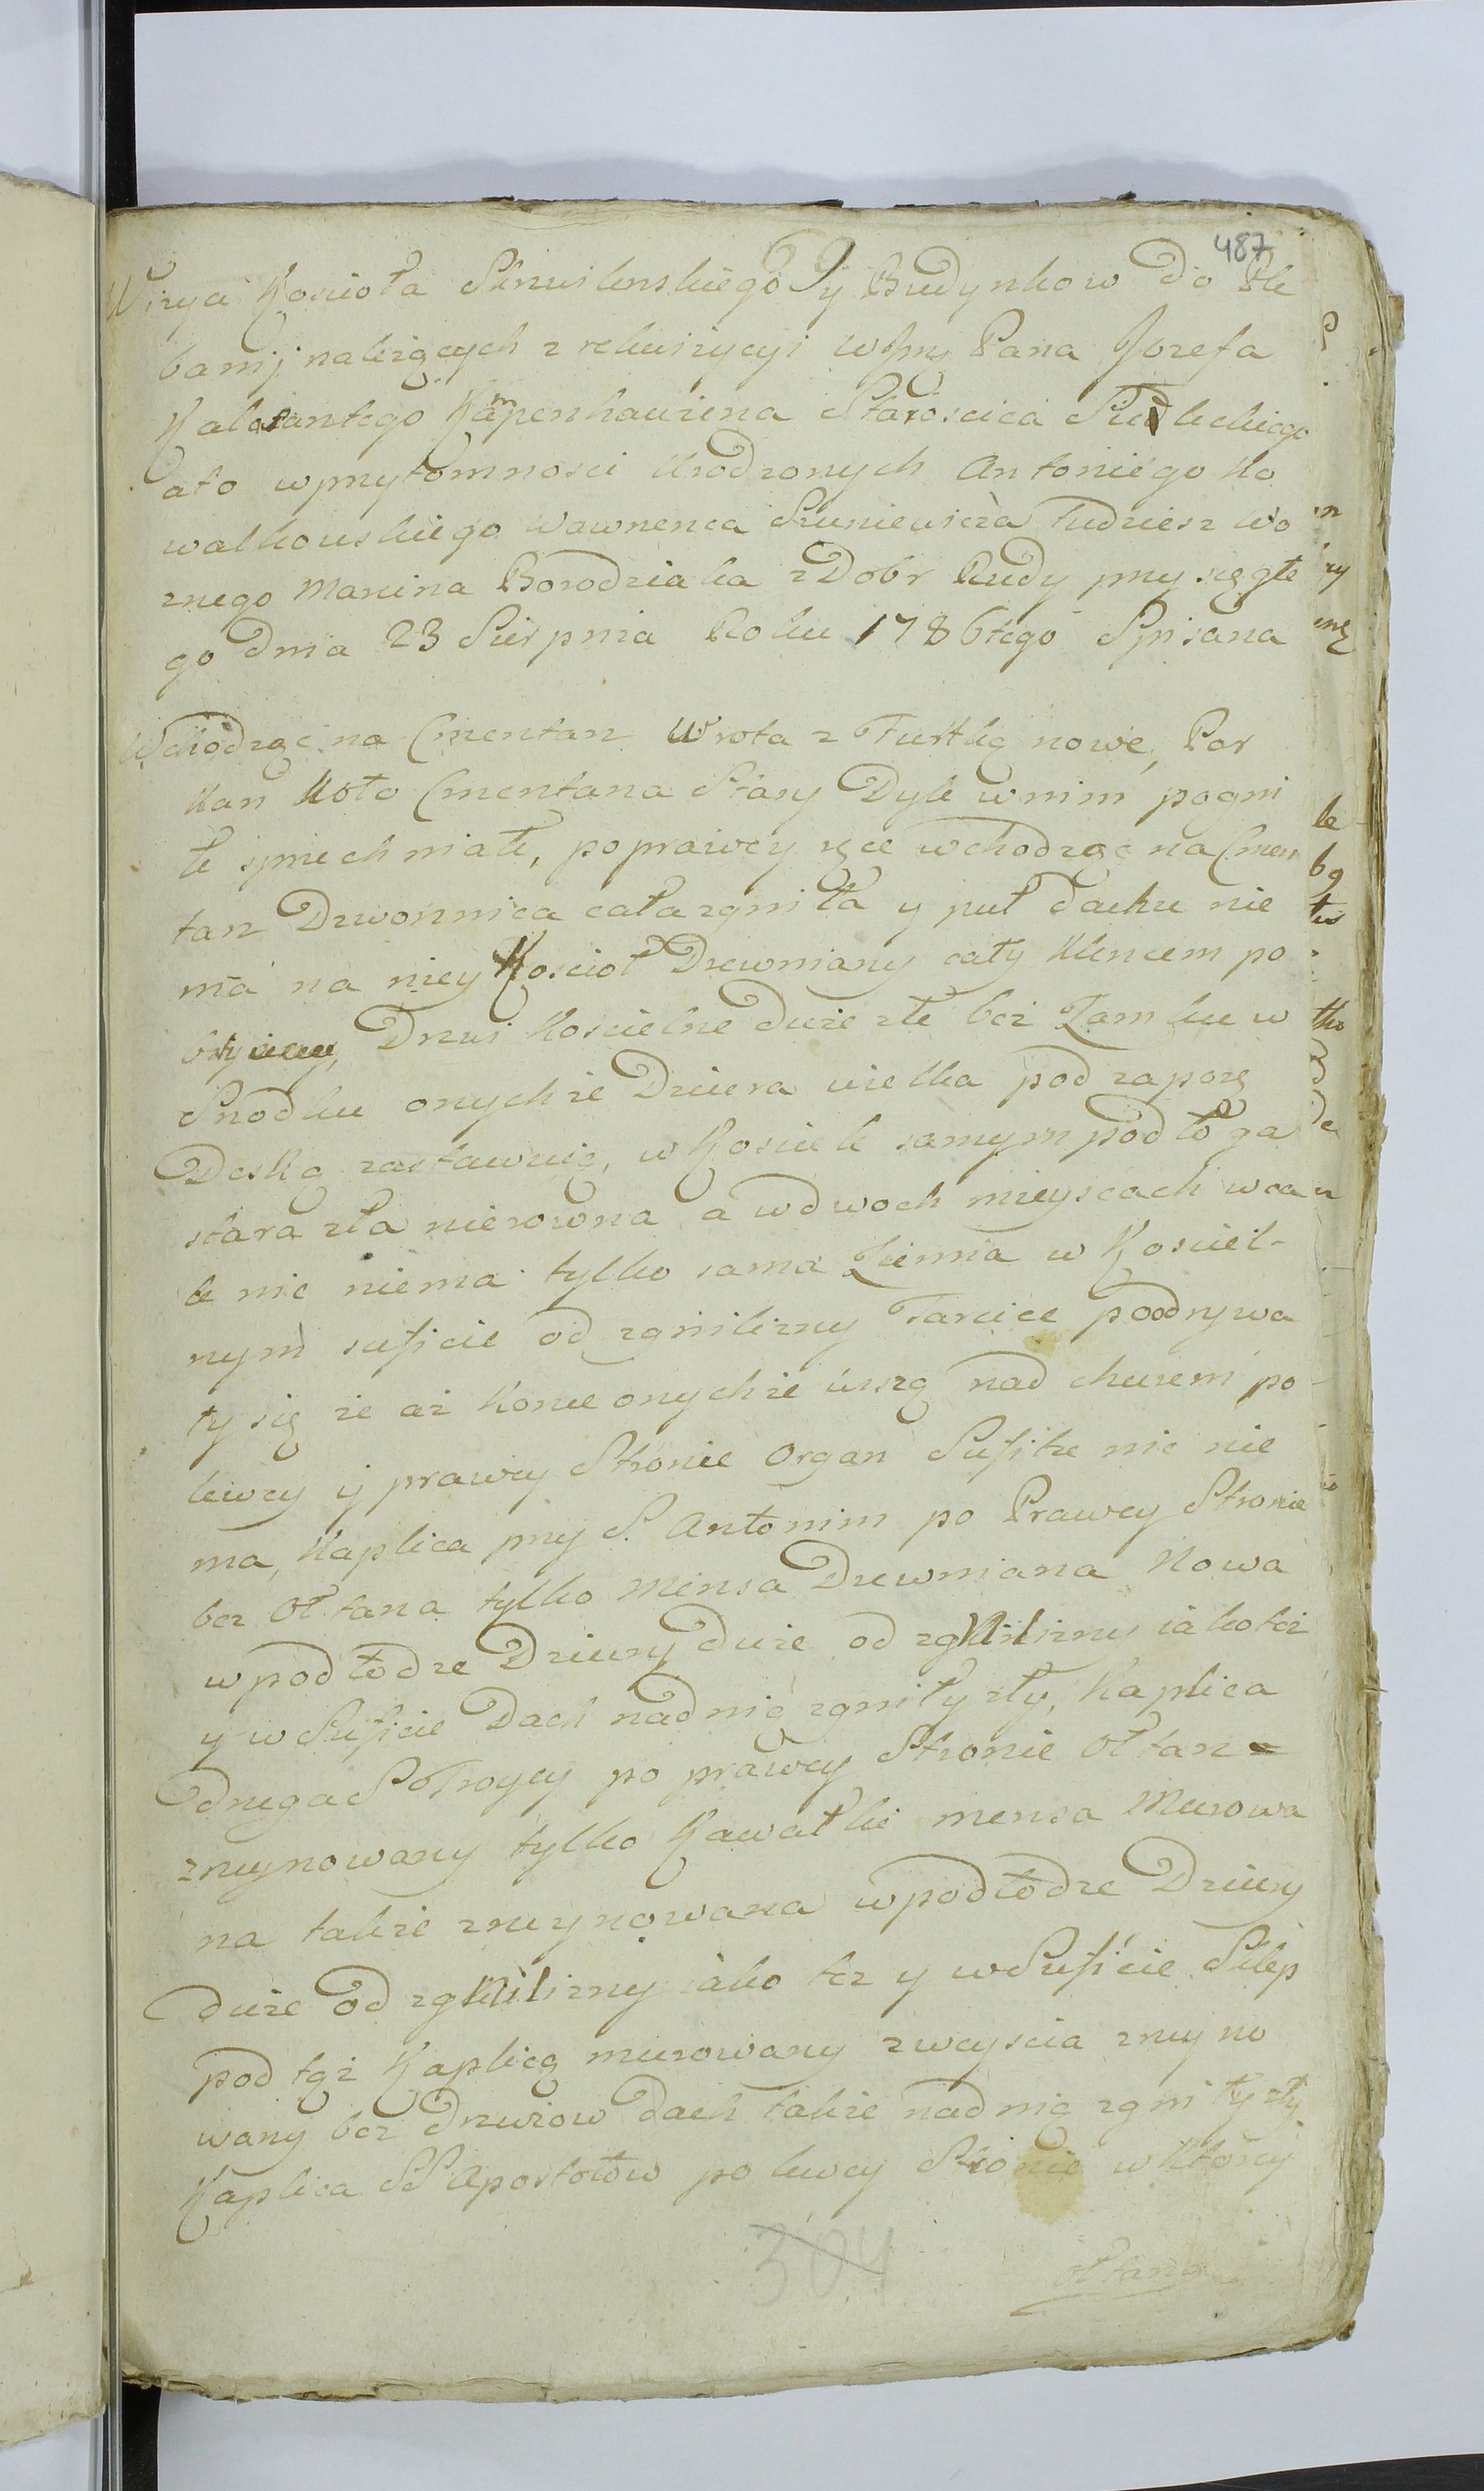 487
Wizya Kosciola Skruilenskiego y Budynkow do Ple
banij nalezących z rekwizycyi WJmę Pana Jozefa
Kalasantego Kampenhauzena Staroscica Siedleckiego
ato wprzytomnosci Urodzonych Antoniego Ko
walkowskiego Wawrzenca Szuniewicza Tudziesz Wo
znego Marcina Borodziaka z Dobr Rudy przysięgłe
go Dnia 23 Sierpnia Roku 1786tego Spisana
Wchodząc na Cmentarz Wrota z Furtką nowe, Par
kan koło Cmentarza Stary Dyle wnim pogni
łe spruchniałe, poprawey ręce wchodząc na Cmen
tarz Dzwonnica cała zgniła y puł dachu nie
ma na niey Kościoł Drewniany cały Klencem po
bity, Drzwi Koscielne duze złe bez Zamku w
Srzodku onychze Dziura wielka pod zaporę
Deską zastawuię, w Kosciele samym podłoga
stara zła nierowna a wdwoch mieyscach wca
le nic niema tylko sama Ziemia w Kosciel-
nym suficie od zgnilizny Tarcice poodrywa
ły się ze az konce onychze wiszą nad churem po
lewey y prawey Stronie Organ Sufitu nic nie
ma, Kaplica przy S. Antonim po Prawey Stronie
bez Ołtarza tylko Mensa Drewniana Nowa
wpodłodze Dziury duze od zgnilizny iako tez
y w Suficie Dach nad nią zgniły zły, Kaplica
Druga S Troycy po prawey Stronie Ołtarz
zruynowany tylko Kawałki mensa Murowa
na takze zruynowana wpodłodze Dziury
duze od zgnilizny iako tez y wSuficie Sklep
pod tąz Kaplicą murowany zweyscia zruyno
wany bez Drzwiow Dach takze nad nią zgniły zły
Kaplica SS Apostołow po lewey Stronie wktorey
ołtarz
304